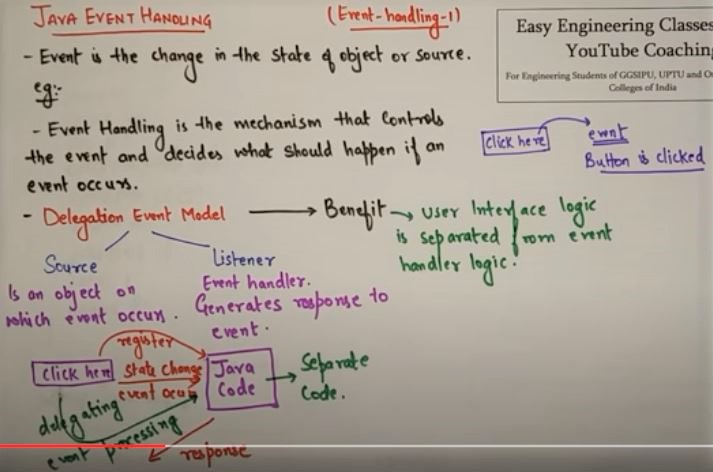 JAVA EVENT HANDLING
(Event-handling-1)
Easy Engineering Classes
YouTube Coaching
For Engineering Students of GGSIPU, UPTU and O
Colleges of India
- Event is the change in the state of object or source.
eg:-
click here
event
Button is clicked
- Event Handling is the mechanism that controls
the event and decides what should happen if an
event occurs.
- Delegation Event Model
Benefit
User Interface logic
is separated from event
handler logic.
Source
Is an object on
which event occurs.
Listener
Event handler.
Generates response to
event.
register
click here
State Change
event occurs
Java
Code
Separate
Code.
delegating
event processing
response